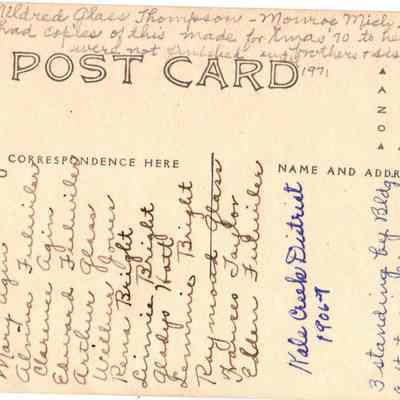 Mildred Glass Thompson - Monroe Mich
had copies of this made for Xmas '70 to he
were not finished and brothers + sis
1971
POST CARD
AZO
CORRESPONDENCE HERE
NAME AND ADDR
Mary Agin
Alvina Fulwiler
Clarence Agin
Edward Fulwiler
Arthur Glass
Willie Jones
Rosa Bright
Linnie Bright
Gladys Hoty
Lemmie Bright
Raymond Glass
Frances Taylor
Ellen Fulwiler
Kale Creek District
1906-7
3 standing by Bldg